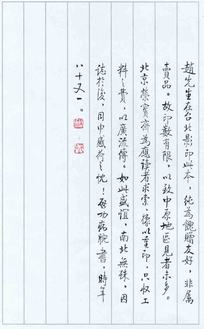 趙先生在台北影印此本，純為餽贈友好，非屬
賣品。故印數有限，以致中原地區見者亦多。
北京榮寶齋為應讀者求索，據以重印，只收工
料之費，以廣流傳。如此盛誼，南北無殊，因
誌於後，用申感荷之忱！啟功病腕書，時年
八十又一。